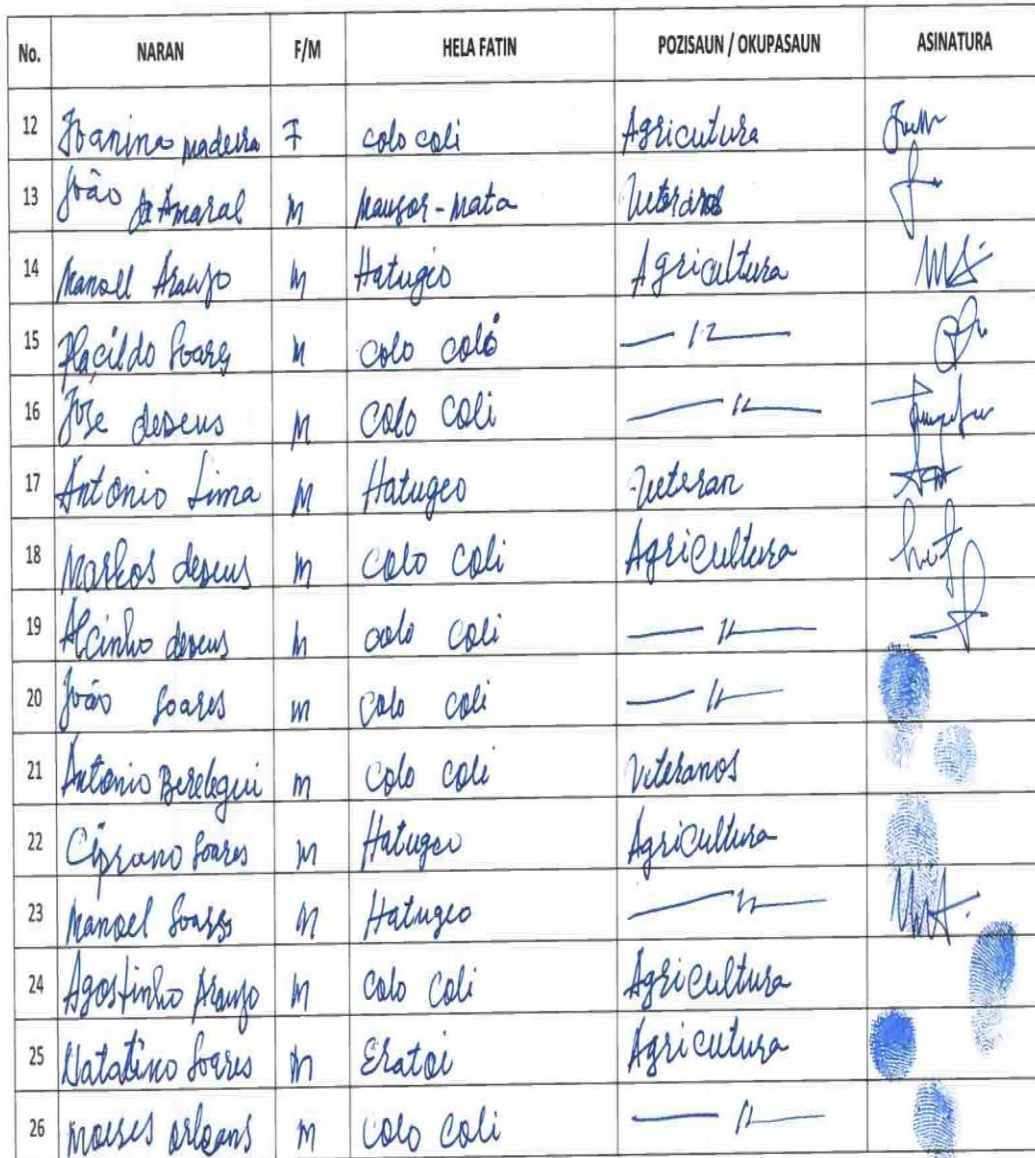 No. NARAN F/M HELA FATIN POZISAUN / OKUPASAUN ASINATURA
12 Joanina madeira F colo coli Agricutura
13 João de Amaral M Mausor-Mata Veteranos
14 Manoel Araujo M Hatugeo Agricultura
15 Placildo Soares M colo colo — 11 —
16 Jose dedeus M Colo Coli — 11 —
17 Antonio Lima M Hatugeo Veteran
18 Markos dedeus M Colo Coli Agricultura
19 Alcinho dedeus M colo Coli — 11 —
20 João Soares M Colo Coli — 11 —
21 Antonio Berelegui M Colo Coli Veteranos
22 Ciprano Soares M Hatugeo Agricultura
23 Manoel Soares M Hatugeo — 11 —
24 Agostinho Araujo M Colo Coli Agricultura
25 Natatino Soares M Eratoi Agricutura
26 Moises orleans M Colo Coli — 11 —